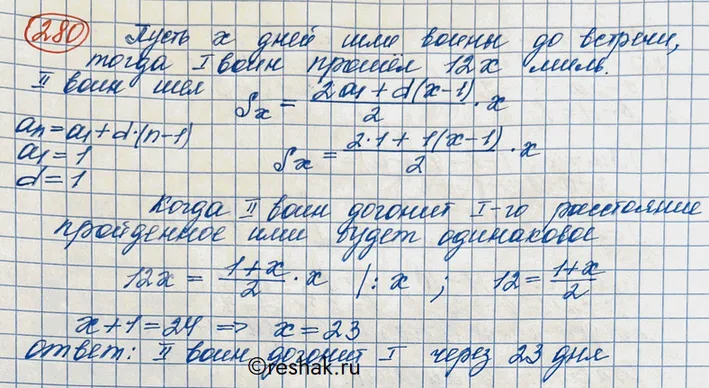 280 Пусть x дней шли воины до встречи,
тогда I воин прошёл 12x миль.
II воин шел Sx = (2a₁ + d(x-1))/2 · x
an = a₁ + d·(n-1)
a₁ = 1 Sx = (2·1 + 1(x-1))/2 · x
d = 1
Когда II воин догонит I-го расстояние
пройденное ими будет одинаковое
12x = (1+x)/2 · x |: x ; 12 = (1+x)/2
x+1 = 24 => x = 23
Ответ: II воин догонит I через 23 дня
©reshak.ru